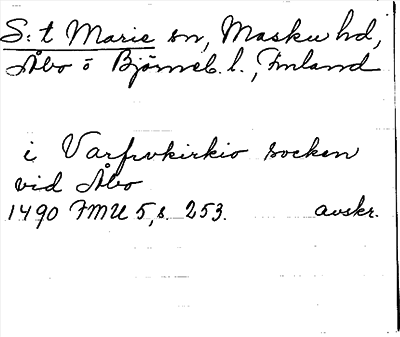 S:t Marie sn, Masku hd,
Åbo o Björneb. l., Finland
i Varfrvkirkio socken
vid Åbo
1490 FMU 5, s. 253. avskr.